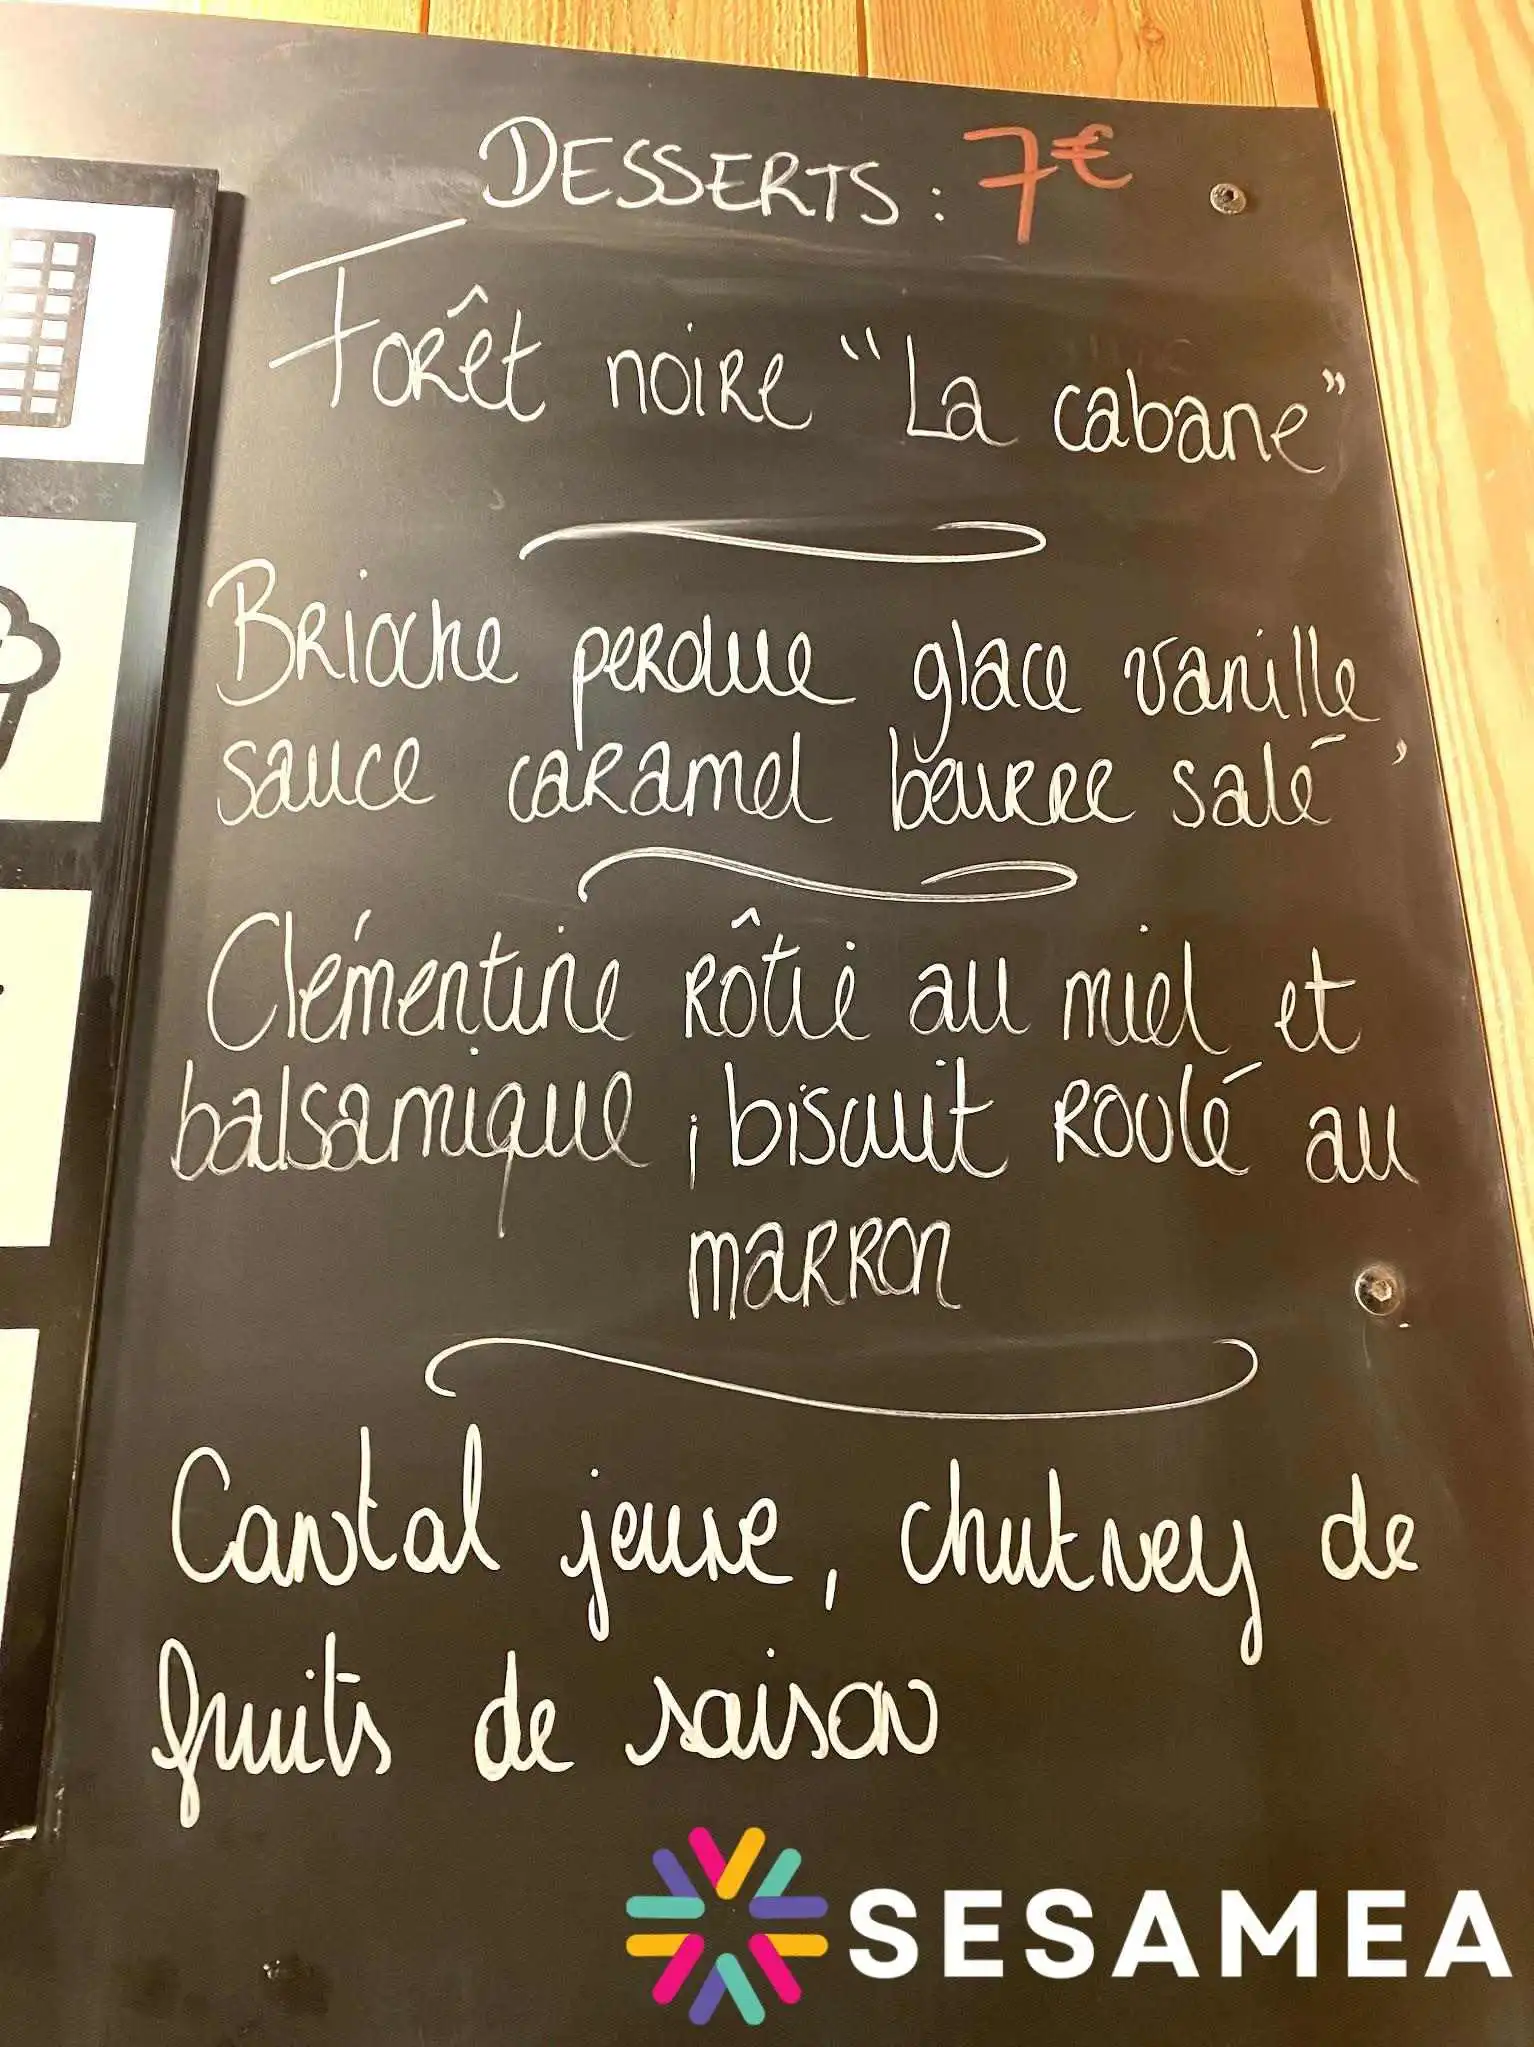 DESSERTS : 7€
Forêt noire "La cabane"
Brioche perdue glace vanille,
sauce caramel beurre salé
Clémentine rôtie au miel et
balsamique, biscuit roulé au
marron
Cantal jeune, chutney de
fruits de saison
SESAMEA